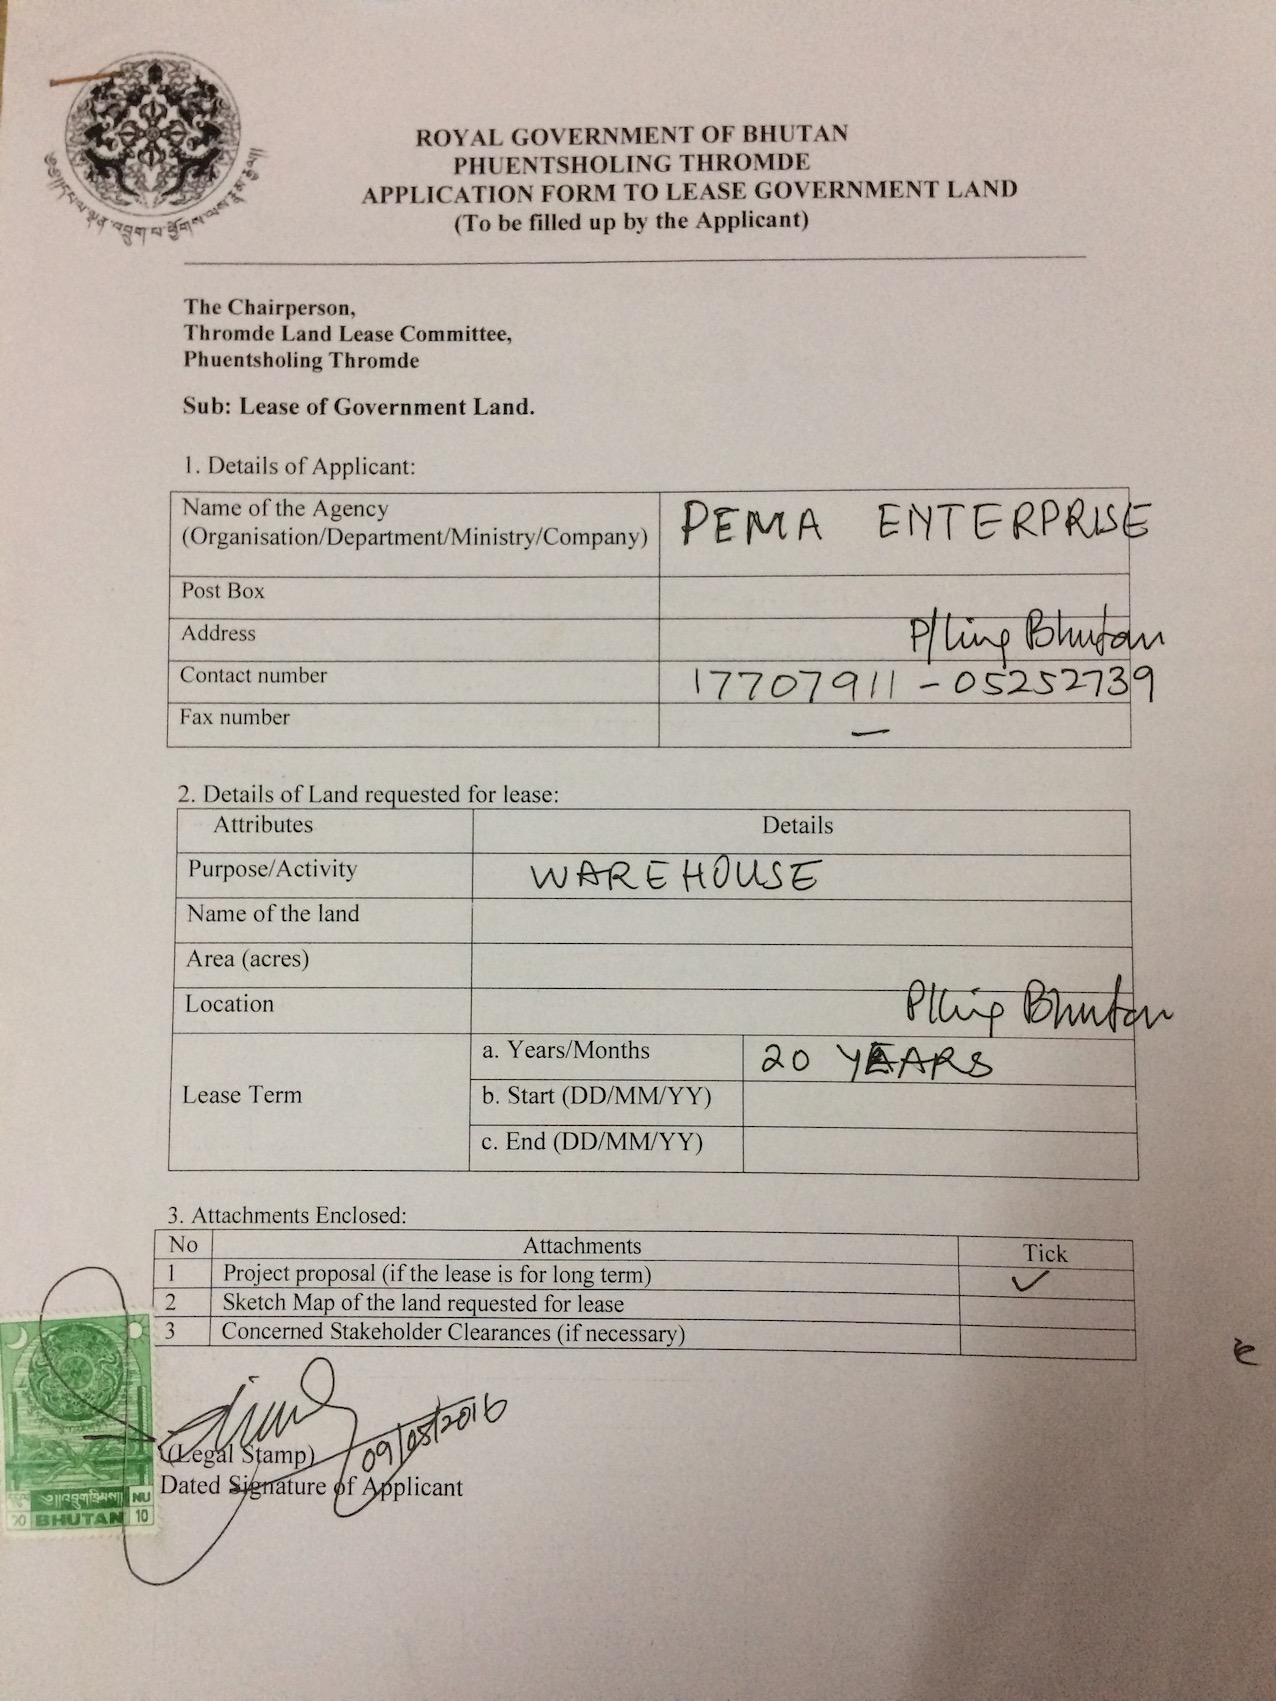 ROYAL GOVERNMENT OF BHUTAN
PHUENTSHOLING THROMDE
APPLICATION FORM TO LEASE GOVERNMENT LAND
(To be filled up by the Applicant)
The Chairperson,
Thromde Land Lease Committee,
Phuentsholing Thromde
Sub: Lease of Government Land.
1. Details of Applicant:
Name of the Agency
(Organisation/Department/Ministry/Company) PEMA ENTERPRISE
Post Box
Address P/ling Bhutan
Contact number 17707911 - 05252739
Fax number –
2. Details of Land requested for lease:
Attributes Details
Purpose/Activity WAREHOUSE
Name of the land
Area (acres)
Location P/ling Bhutan
Lease Term
a. Years/Months 20 YEARS
b. Start (DD/MM/YY)
c. End (DD/MM/YY)
3. Attachments Enclosed:
No Attachments Tick
1 Project proposal (if the lease is for long term) ✓
2 Sketch Map of the land requested for lease
3 Concerned Stakeholder Clearances (if necessary)
09/05/2016
(Legal Stamp)
Dated Signature of Applicant
NU
BHUTAN 10